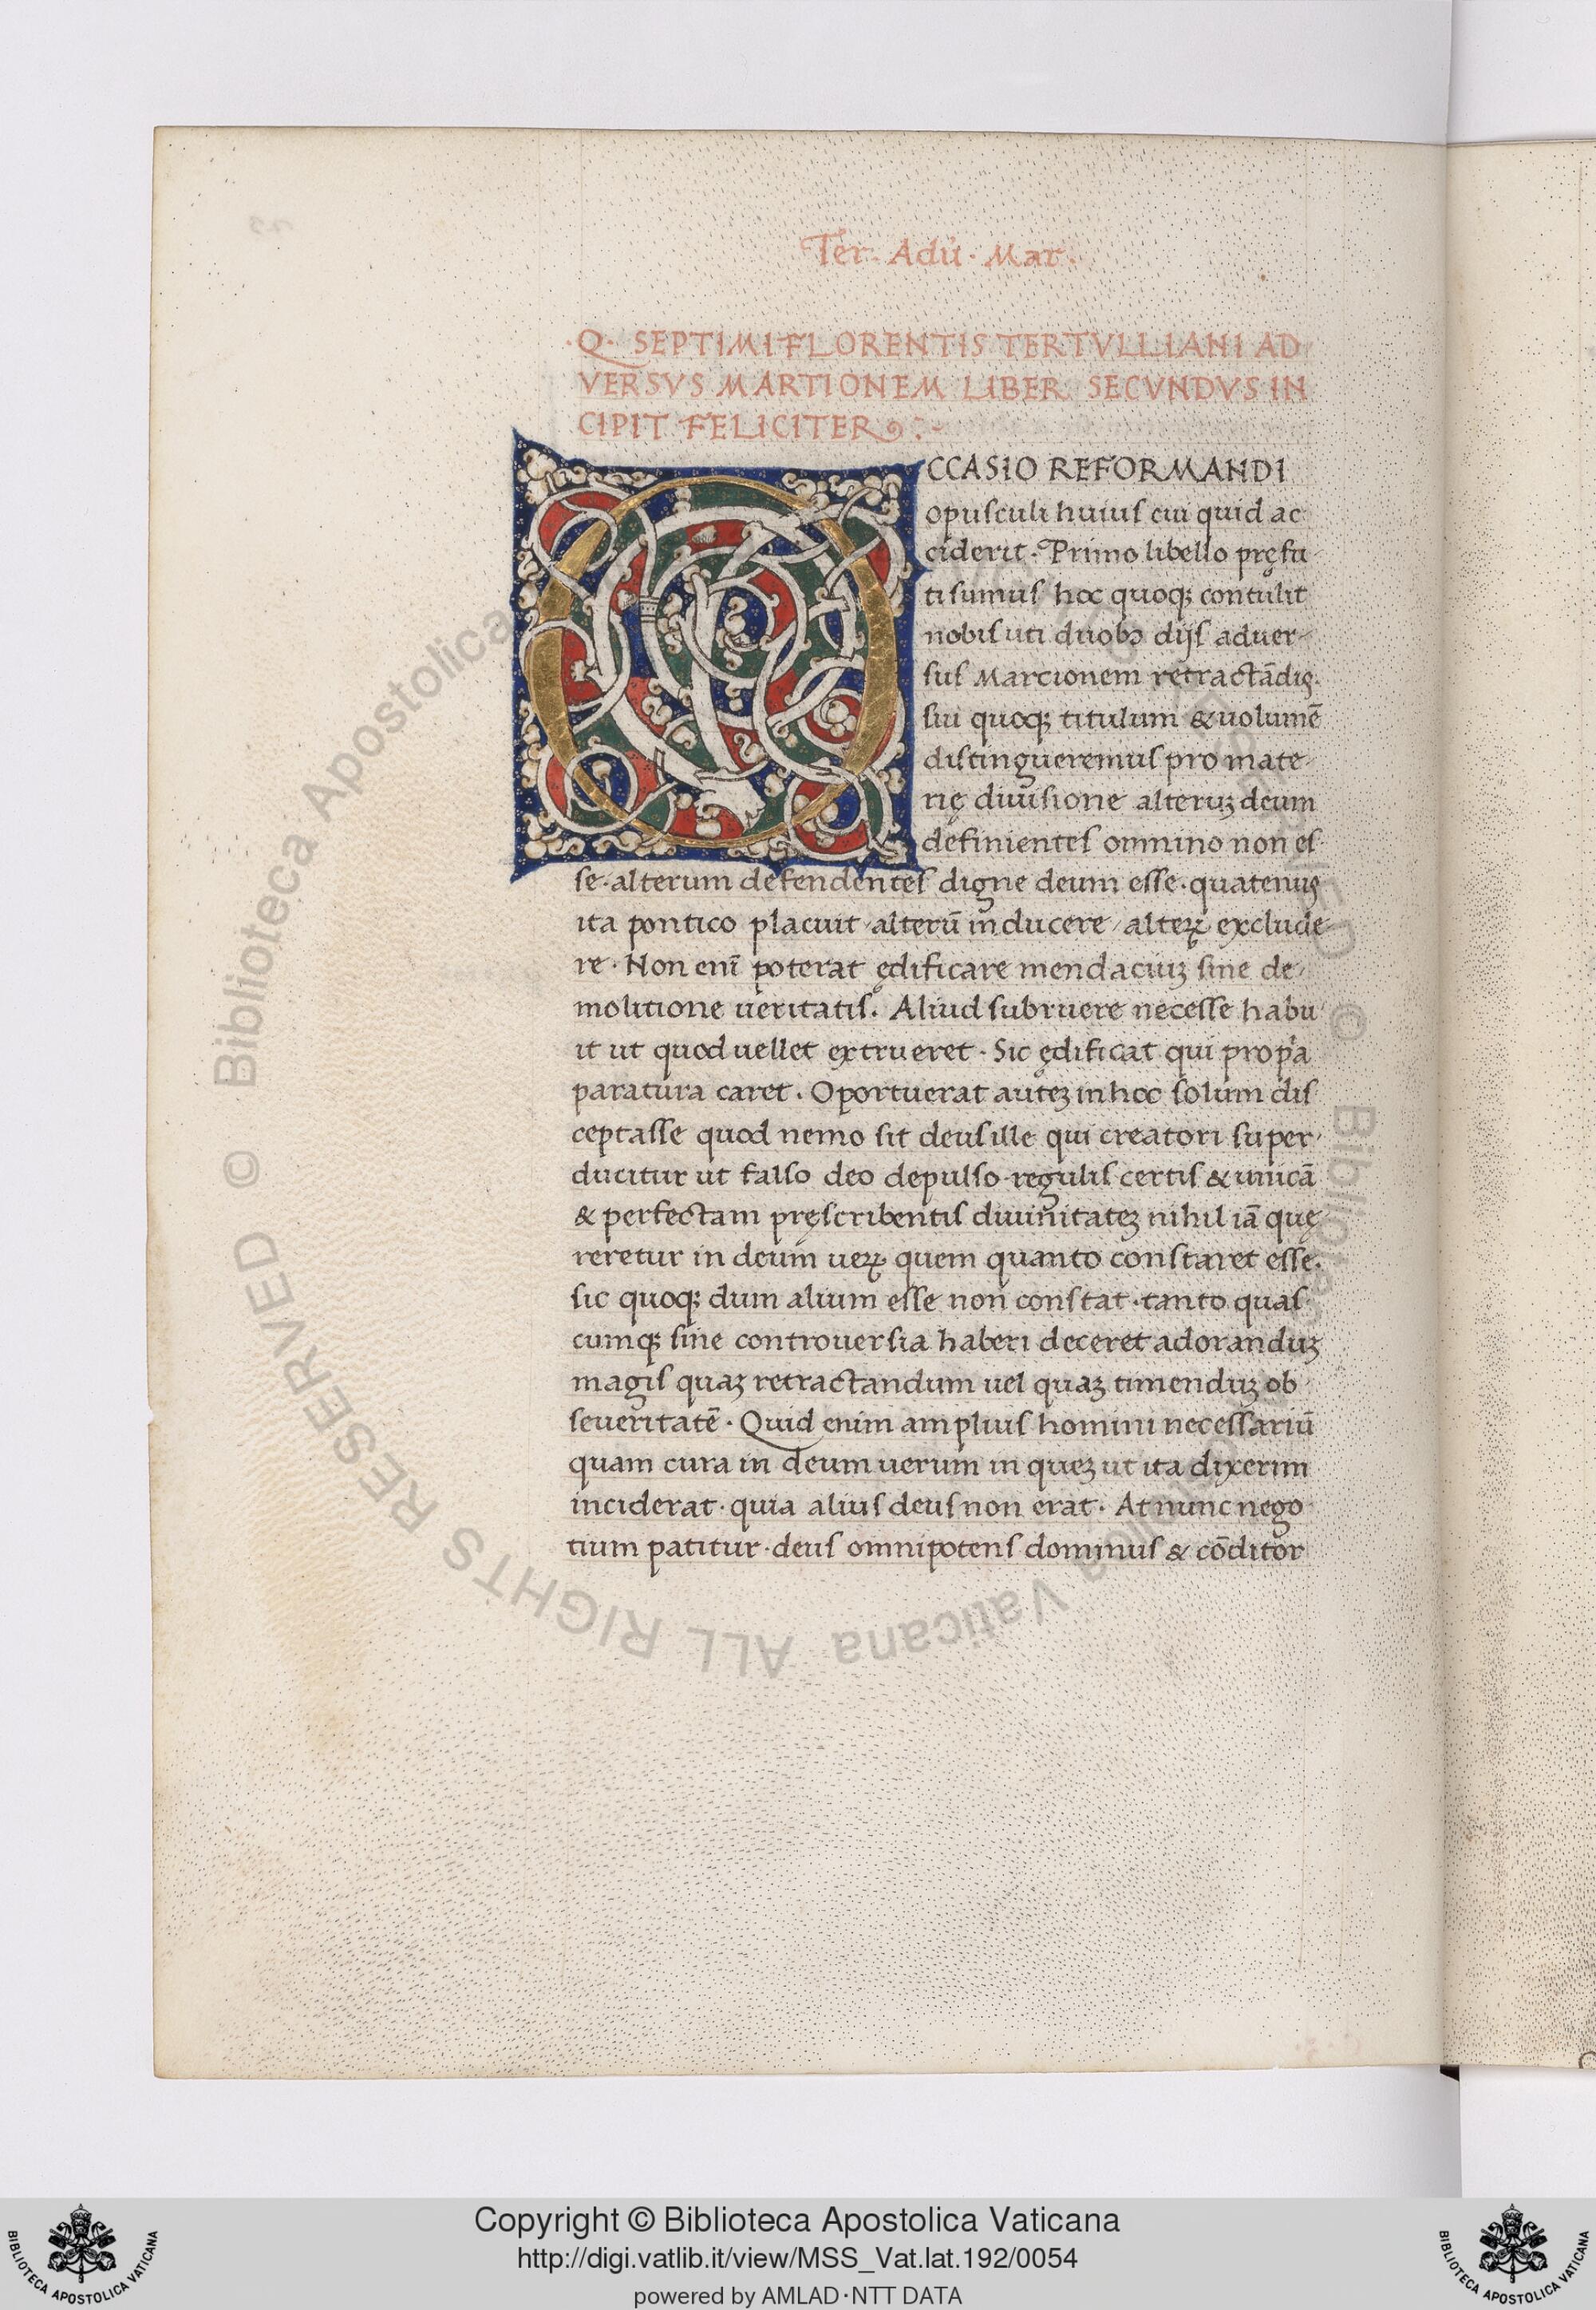 Ter. Adú. Mar.
·Q· SEPTIMI FLORENTIS TERTVLLIANI AD
VERSVS MARTIONEM LIBER SECVNDVS IN
CIPIT FELICITER
OCCASIO REFORMANDI
opusculi huius cui quid ac
ciderit · Primo libello pręfa
ti sumus hoc quoqꝫ contulit
nobis uti duobꝫ dijs aduer-
sus Marcionem retractādis·
sui quoqꝫ titulum & uolumē
distingueremus pro mate-
rię diuisione alteruꝫ deum
definientes omnino non es-
se · alterum defendentes digne deum esse · quatenus
ita pontico placuit · alterū inducere / alteꝝ exclude-
re · Non enī poterat ędificare mendaciuꝫ sine de-
molitione ueritatis. Aliud subruere necesse habu-
it ut quod uellet extrueret · Sic ędificat qui propa
paratura caret · Oportuerat auteꝫ in hoc solum dis
ceptasse quod nemo sit deus ille qui creatori super-
ducitur ut falso deo depulso regulis certis & unicā
& perfectam pręscribentis diuinitateꝫ nihil iā quę
reretur in deum ueꝝ quem quanto constaret esse.
sic quoqꝫ dum alium esse non constat · tanto quas
cumqꝫ sine controuersia haberi deceret adoranduꝫ
magis quaꝫ retractandum uel quaꝫ timenduꝫ ob
seueritatē · Quid enim amplius homini necessariū
quam cura in deum uerum in queꝫ ut ita dixerim
inciderat · quia alius deus non erat · At nunc nego
tium patitur · deus omnipotens dominus & cōditor
© Biblioteca Apostolica Vaticana ALL RIGHTS RESERVED
Copyright © Biblioteca Apostolica Vaticana
http://digi.vatlib.it/view/MSS_Vat.lat.192/0054
powered by AMLAD·NTT DATA
BIBLIOTECA APOSTOLICA VATICANA
BIBLIOTECA APOSTOLICA VATICANA